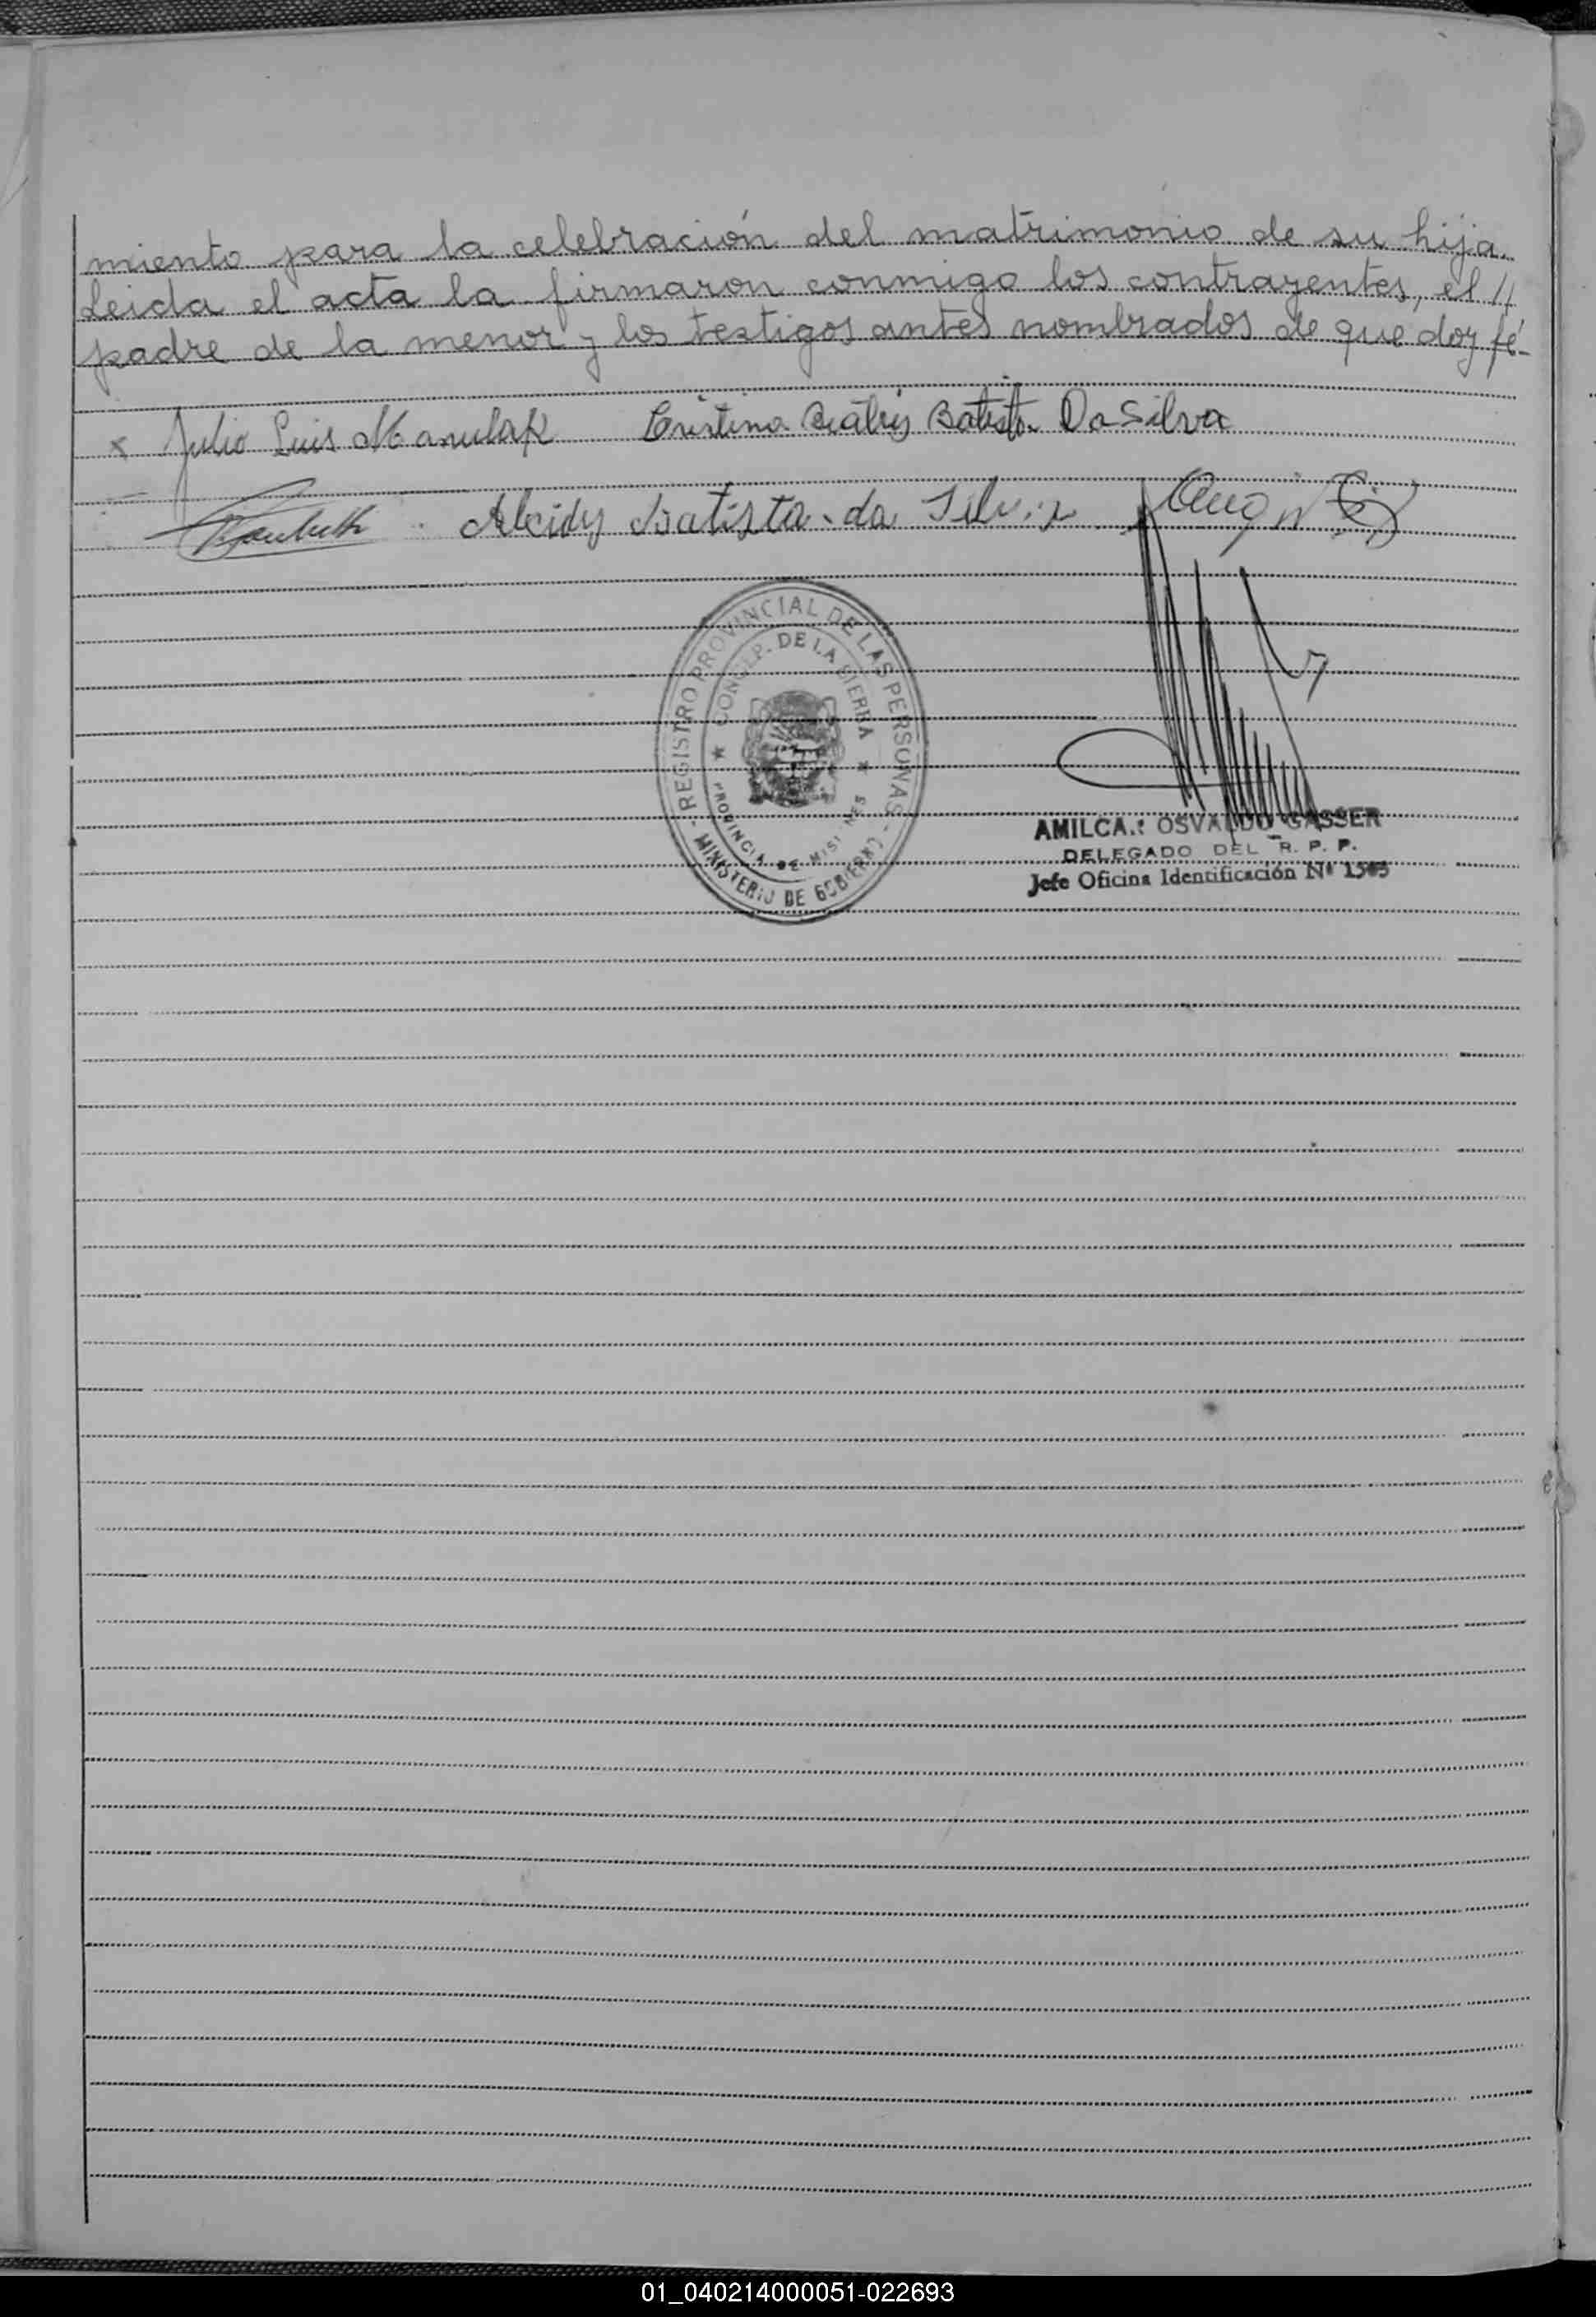 miento para la celebración del matrimonio de su hija.
Leida el acta la firmaron conmigo los contrayentes, el //
padre de la menor y los testigos antes nombrados de que doy fé-
x Julio Luis Manulak Cristina Beatris Batista Da Silva
Alcides Batista da Silva
- REGISTRO PROVINCIAL DE LAS PERSONAS -
MINISTERIO DE GOBIERNO
★ CONCEP. DE LA SIERRA ★
PROVINCIA DE MISIONES
AMILCAR OSVALDO GASSER
DELEGADO DEL R. P. P.
Jefe Oficina Identificación Nº
01_040214000051-022693